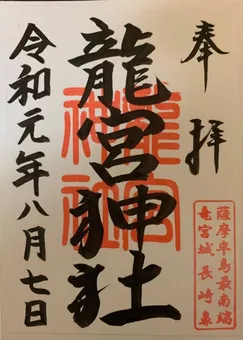 奉拝
薩摩半島最南端
竜宮城長崎鼻
龍宮神社
龍宮
神社
令和元年八月七日